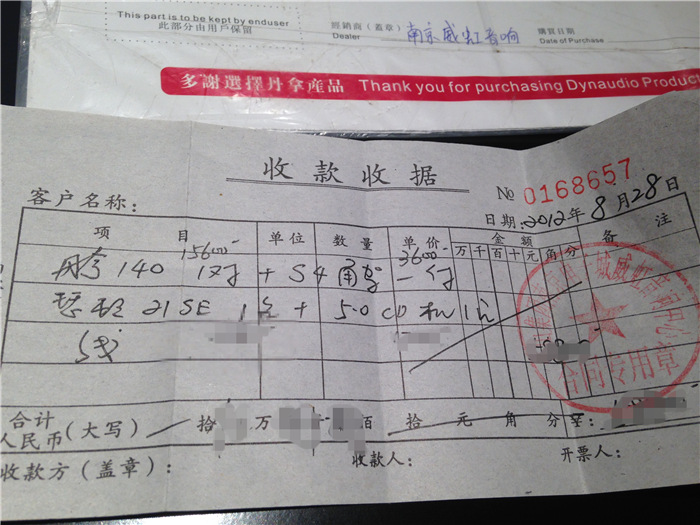 This part is to be kept by enduser
此部分由用戶保留
經銷商（蓋章）
Dealer
南京威虹音响
購買日期
Date of Purchase
多謝選擇丹拿産品 Thank you for purchasing Dynaudio Produc
收款收据
№ 0168657
客户名称：
日期：2012年8月28日
项 目 单位 数量 单价 金额 备 注
万千百十元角分
15600 3600
丹拿140 1对 + S4 一付
21SE 1台 + 5.0 CD机 1台
线
合计
人民币（大写） 拾 万 佰 拾 元 角 分
收款方（盖章）： 收款人： 开票人：
合同专用章